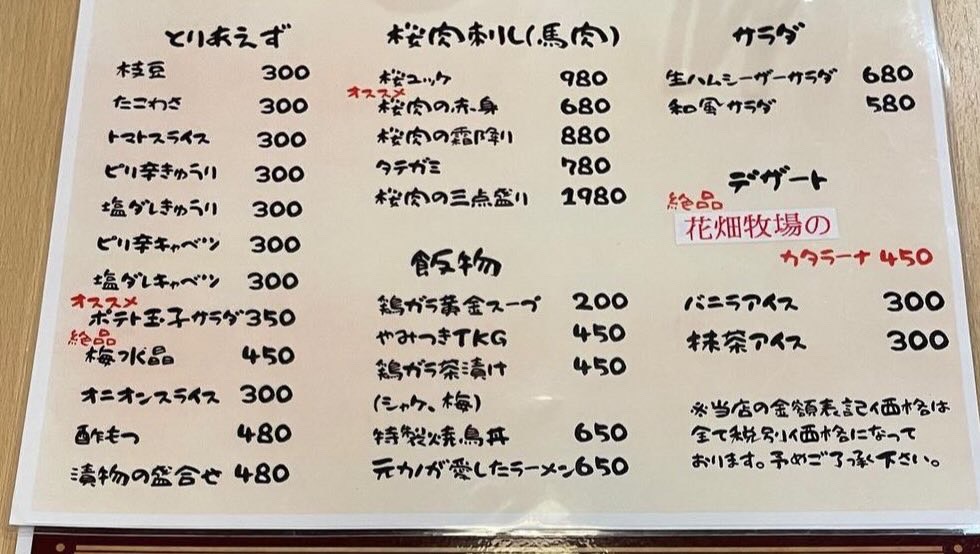 とりあえず
枝豆 300
たこわさ 300
トマトスライス 300
ピリ辛きゅうり 300
塩ダレきゅうり 300
ピリ辛キャベツ 300
塩ダレキャベツ 300
オススメ
ポテト玉子サラダ 350
絶品
梅水晶 450
オニオンスライス 300
酢もつ 480
漬物の盛合せ 480
桜肉刺し(馬肉)
桜ユッケ 980
オススメ
桜肉の赤身 680
桜肉の霜降り 880
タテガミ 780
桜肉の三点盛り 1980
飯物
鶏ガラ黄金スープ 200
やみつきTKG 450
鶏ガラ茶漬け 450
(シャケ、梅)
特製焼鳥丼 650
元カノが愛したラーメン 650
サラダ
生ハムシーザーサラダ 680
和風サラダ 580
デザート
絶品
花畑牧場の
カタラーナ 450
バニラアイス 300
抹茶アイス 300
※当店の金額表記価格は
全て税別価格になって
おります。予めご了承下さい。